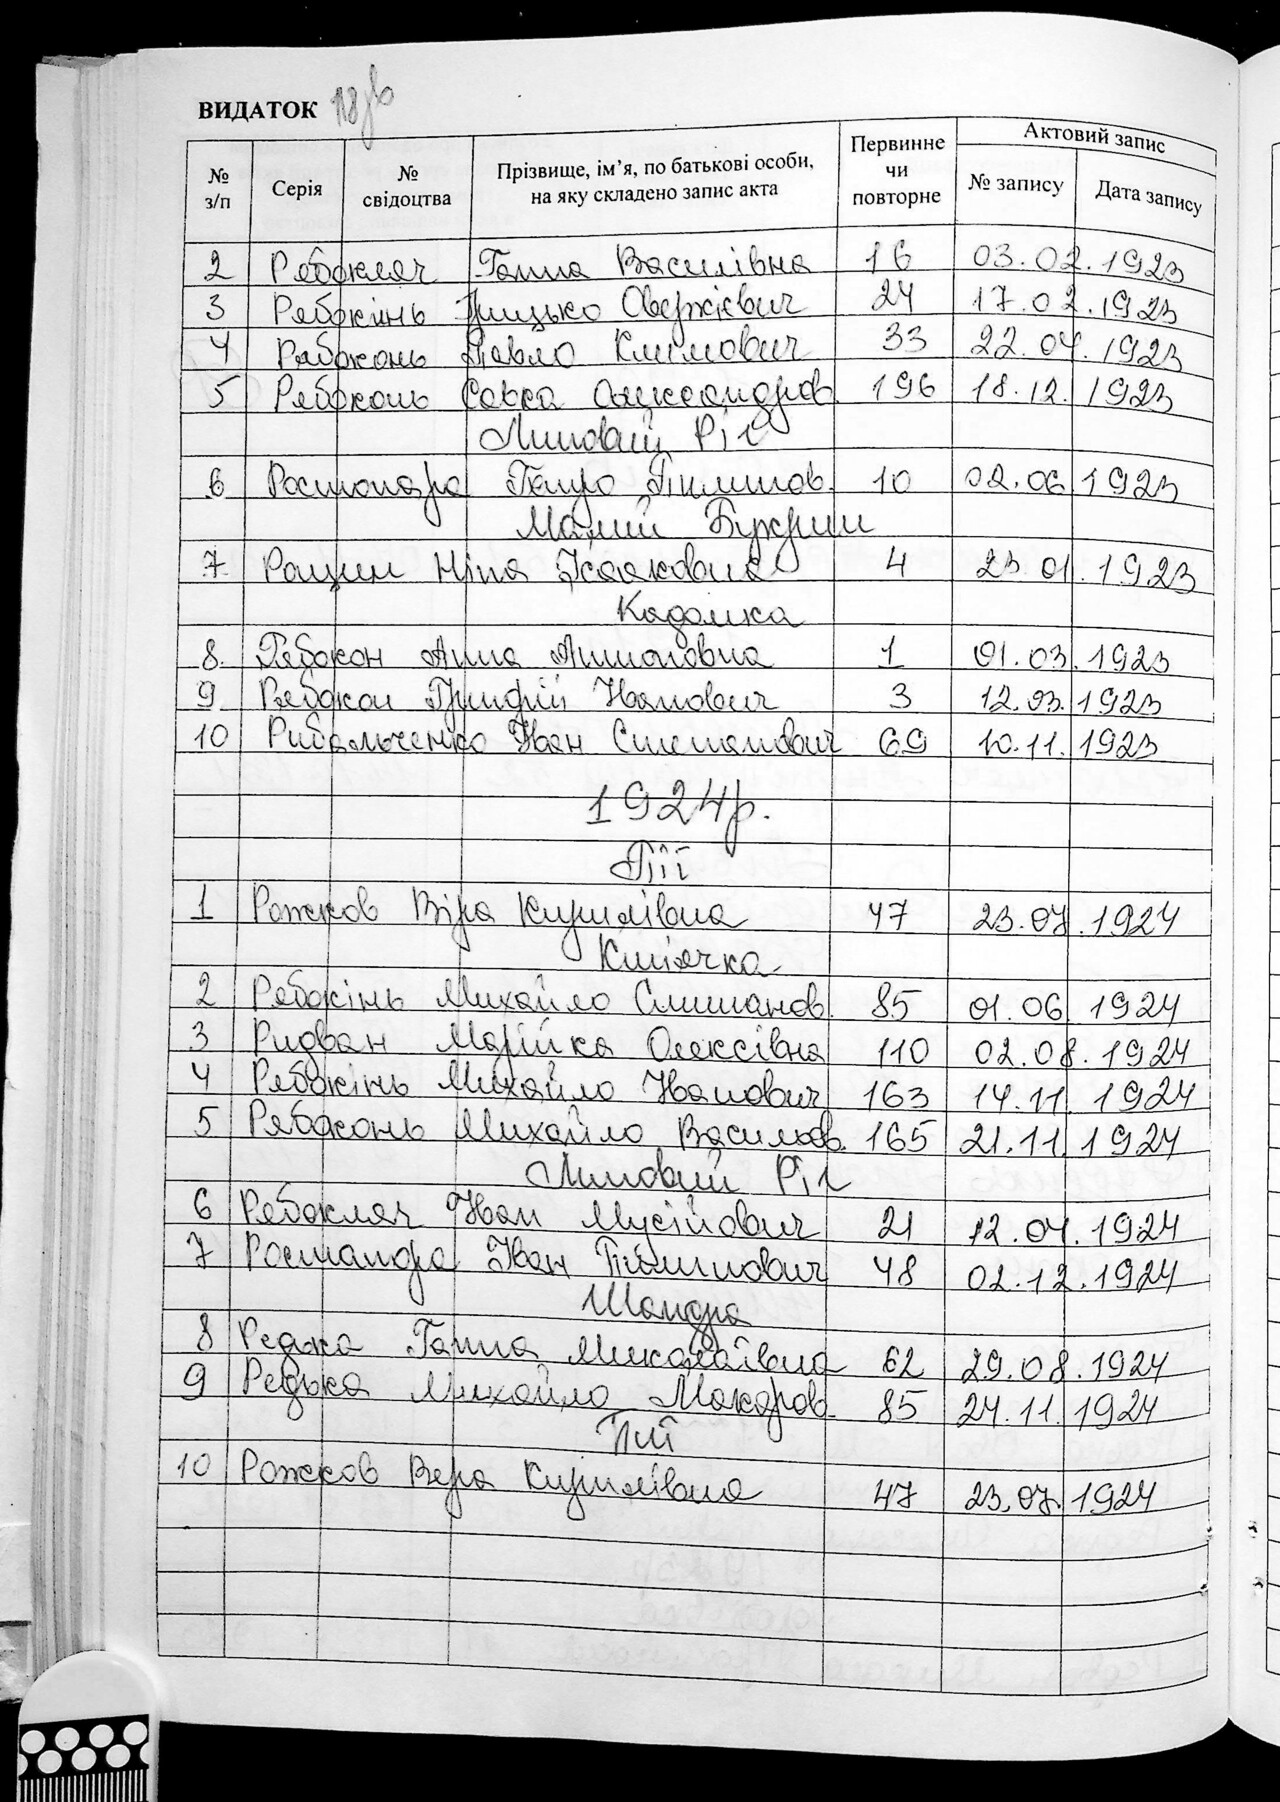 ВИДАТОК 18зв
Актовий запис
№ з/п Серія № свідоцтва Прізвище, ім’я, по батькові особи, на яку складено запис акта Первинне чи повторне № запису Дата запису
2 Рябокляч Ганна Василівна 16 03.02.1923
3 Рябокінь Грицько Овержієвич 24 17.02.1923
4 Рябоконь Павло Климович 33 22.04.1923
5 Рябоконь Савка Олександров. 196 18.12.1923
Липовий Ріг
6 Ростопара Петро Пилипов. 10 02.06.1923
Малий Букрин
7 Рощин Ніна Ісааковна 4 23.01.1923
Кадомка
8. Рябокон Анна Антоновна 1 01.03.1923
9. Рябокон Григорій Іванович 3 12.03.1923
10 Рибальченко Іван Степанович 69 10.11.1923
1924р.
Пії
1 Рожков Віра Кирилівна 47 23.07.1924
Кип'ячка
2 Рябокінь Михайло Степанов. 85 01.06.1924
3 Ридван Марійка Олексівна 110 02.08.1924
4 Рябокінь Михайло Іванович 163 14.11.1924
5 Рябоконь Михайло Васильов. 165 21.11.1924
Липовий Ріг
6 Рябокляч Іван Мусійович 21 12.04.1924
7 Ростапара Іван Пилипович 48 02.12.1924
Шандра
8 Редька Ганна Микалаївна 62 29.08.1924
9 Редька Михайло Макаров. 85 24.11.1924
Пії
10 Рожков Вера Кирилівна 47 23.07.1924